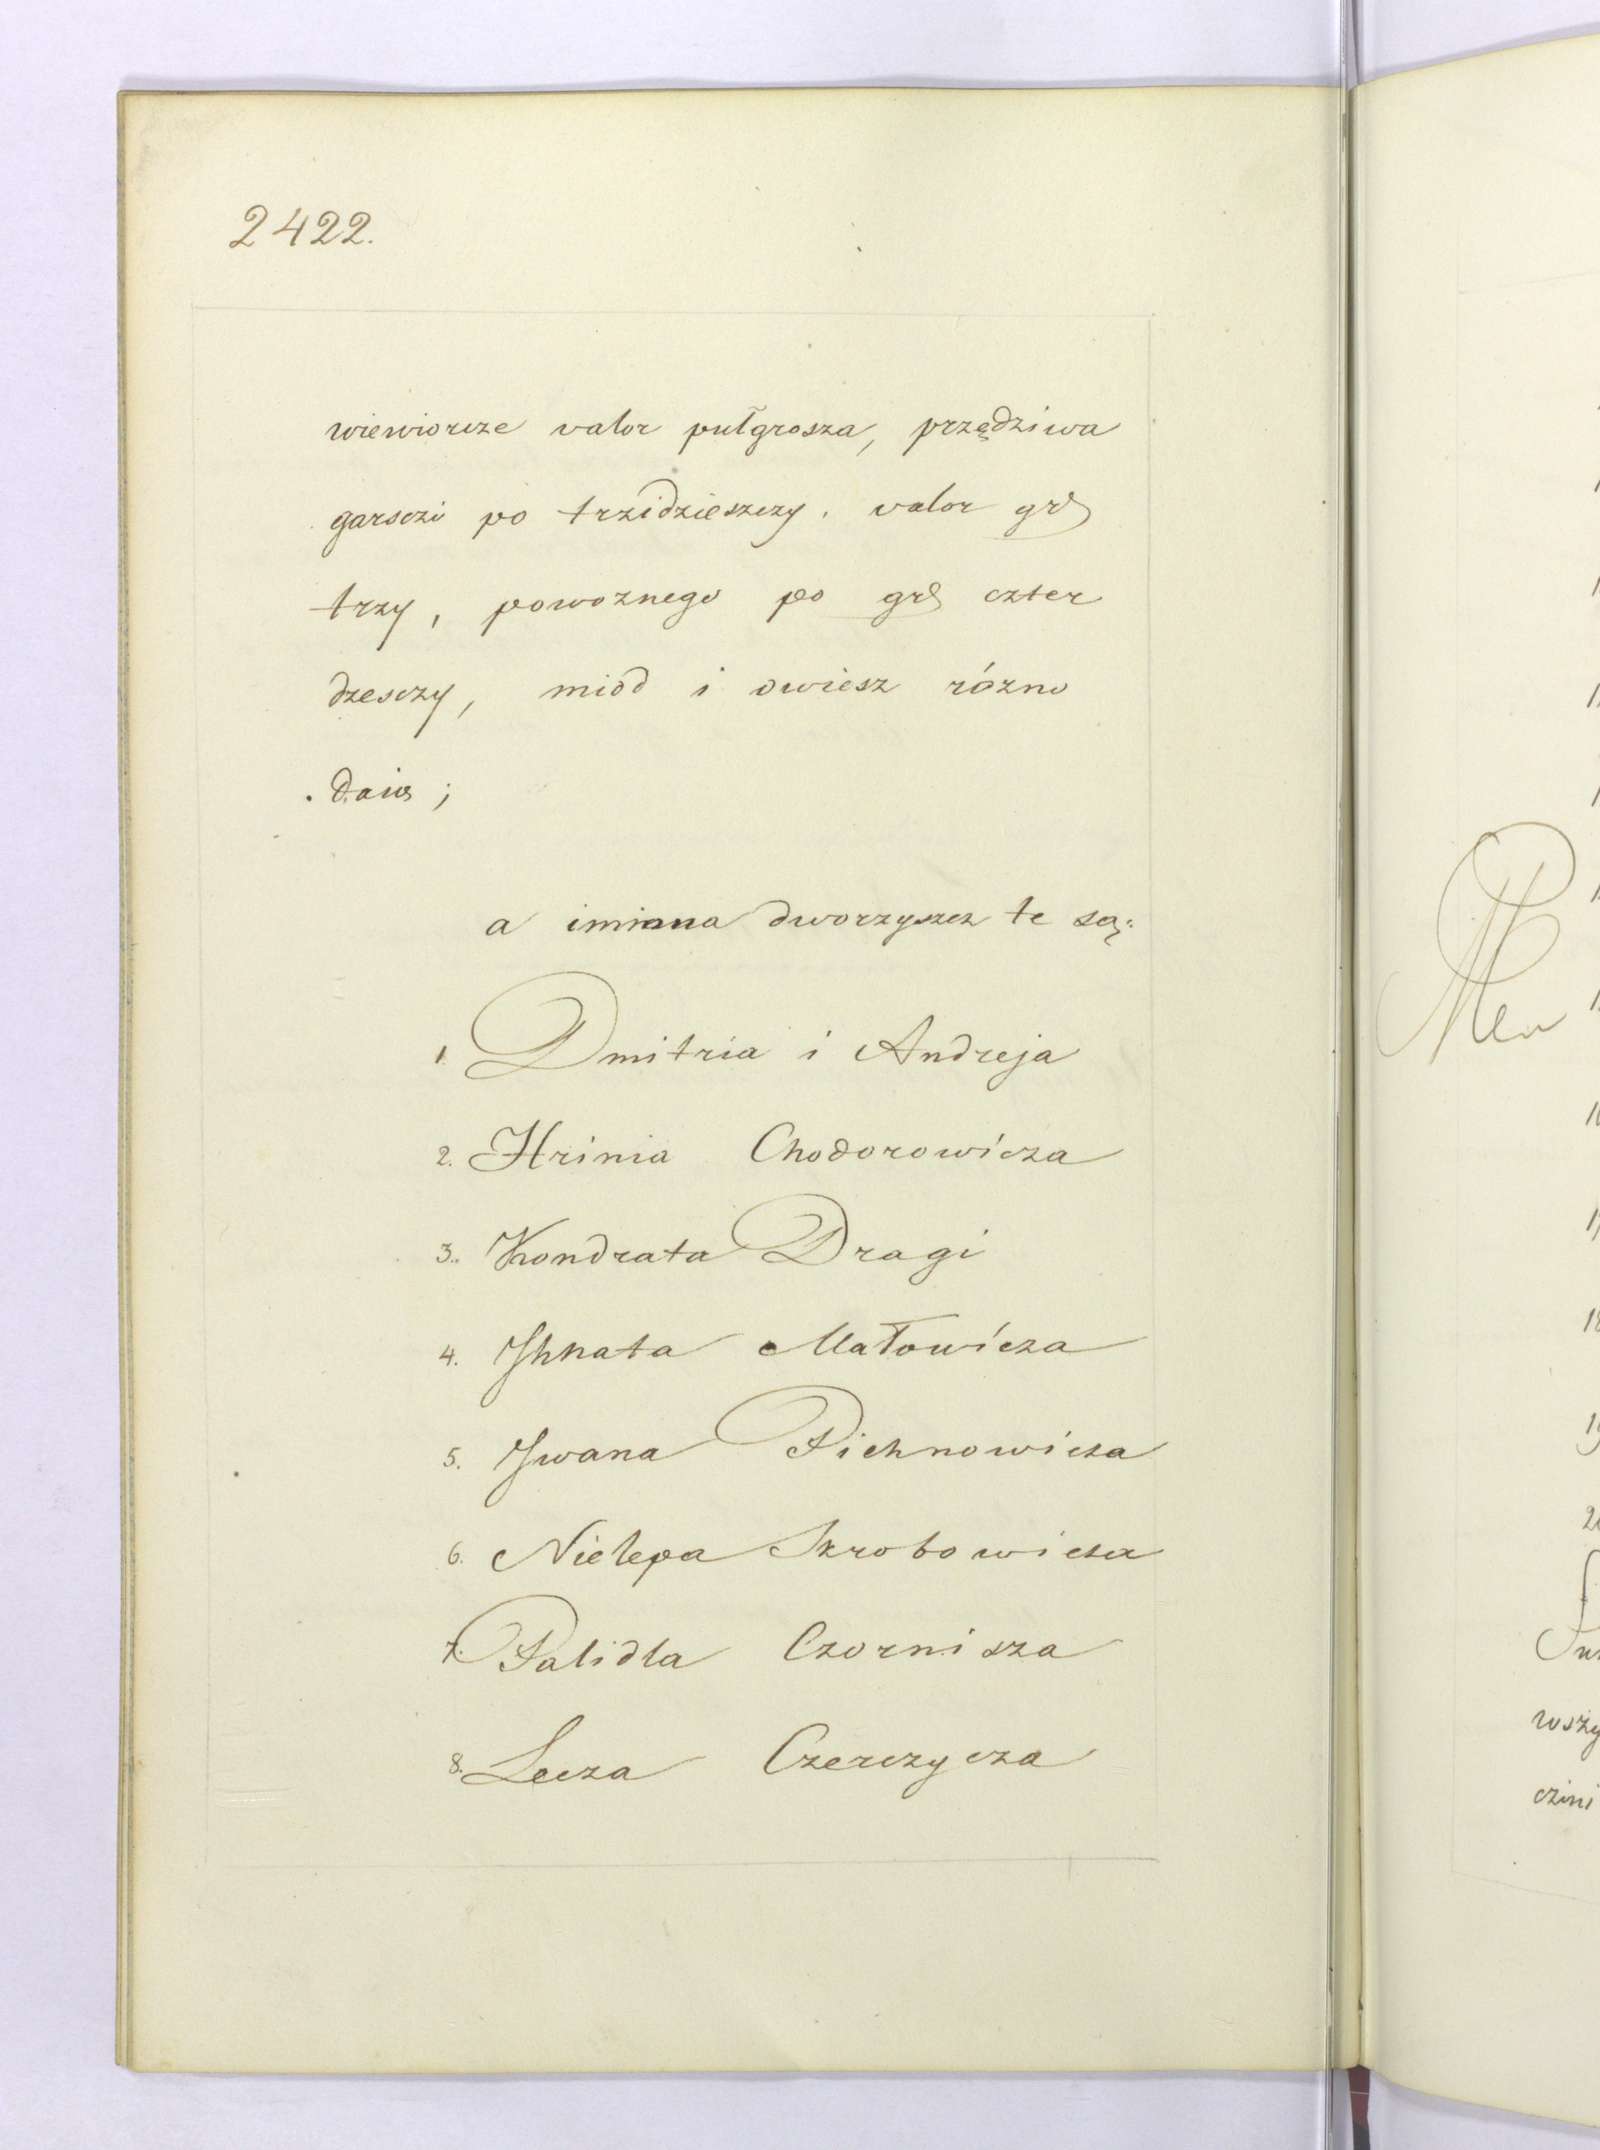 2422.
wiewiorcze valor pułgrosza, przędziwa
garsczi po trzidzieszczy, valor gr
trzy, powoznego po gr czter
dzesczy, miód i owiesz rózno
a imiona dworzyszcz te są:
1. Dmitria i Andreja
2. Hrinia Chodorowicza
3. Kondrata Dragi
4. Ihnata Małowicza
5. Iwana Pichnowicza
6. Nielepa Skrobowicza
7. Palidla Czornisza
8. Lecza Czerczycza